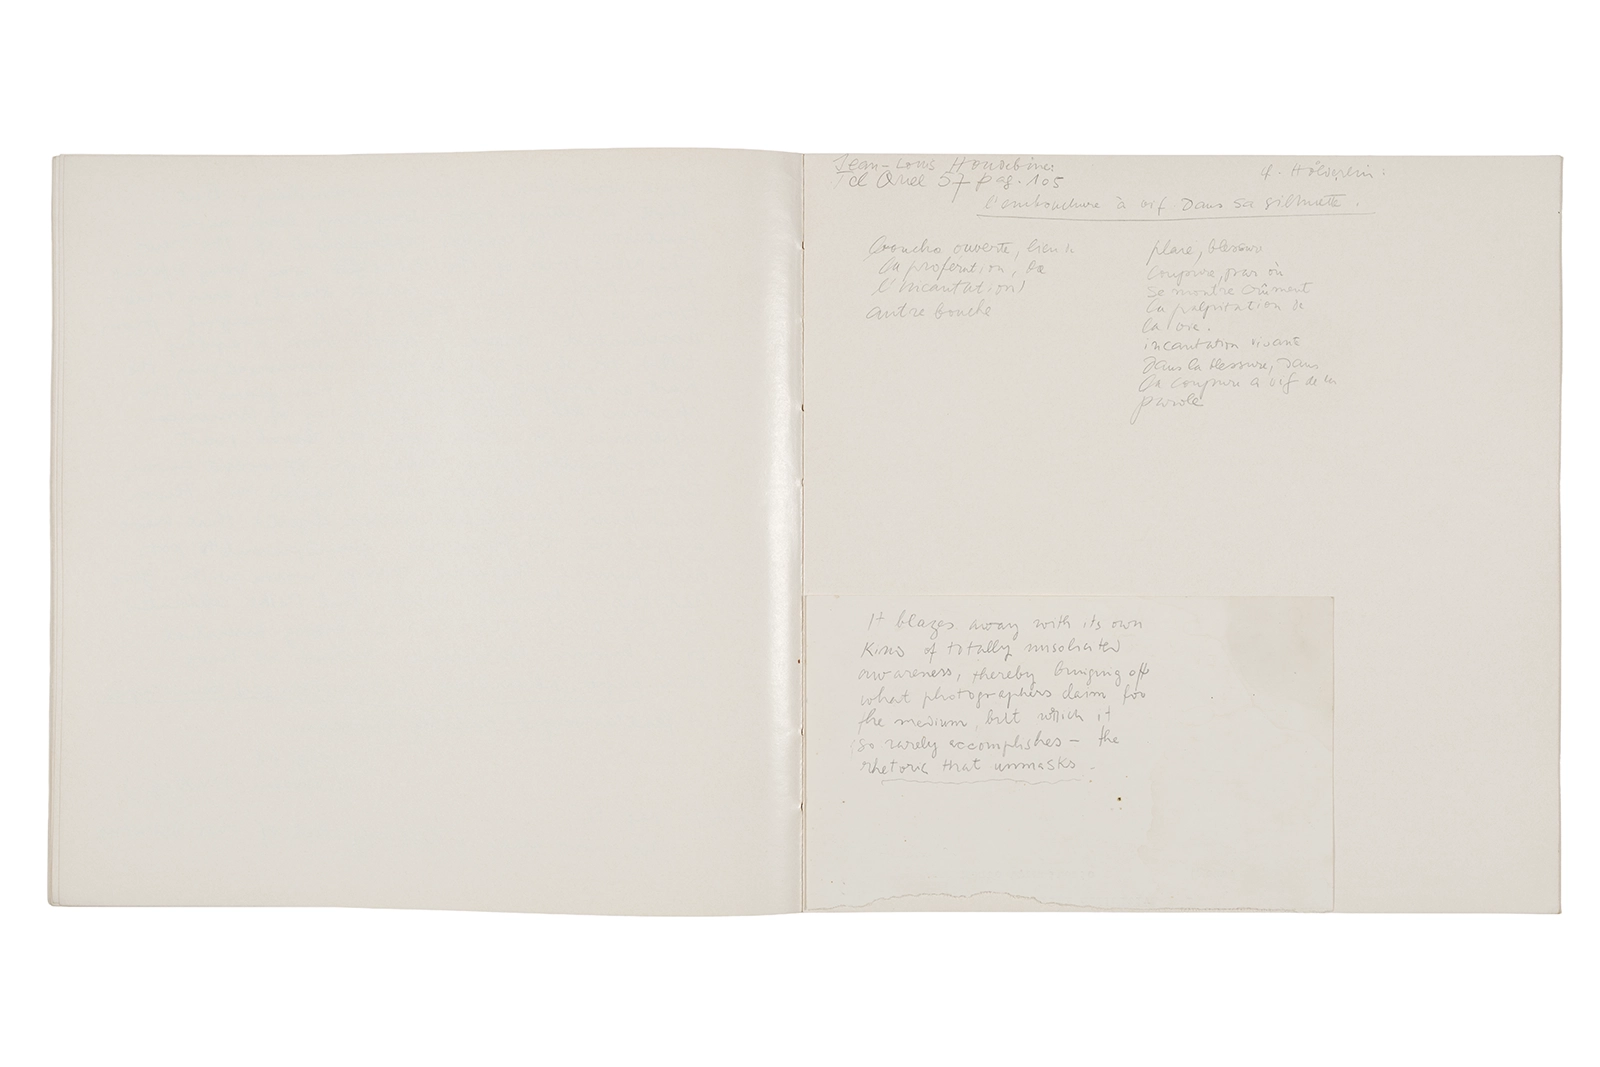 Jean-Louis Houdebine
Tel Quel 57 pag. 105
cf. Hölderlin:
l'embouchure à vif dans sa silhuette.
bouche ouverte, lieu de
la profération, de
l'incantation)
autre bouche
plaie, blessure
coupure, par où
se montre crûment
la palpitation de
la vie.
incantation vivant
dans la blessure, dans
la coupure a vif de la
parole
It blazes away with its own
kind of totally unsolicited
awareness, thereby bringing off
what photographers claim for
the medium, but which it
so rarely accomplishes — the
rhetoric that unmasks.